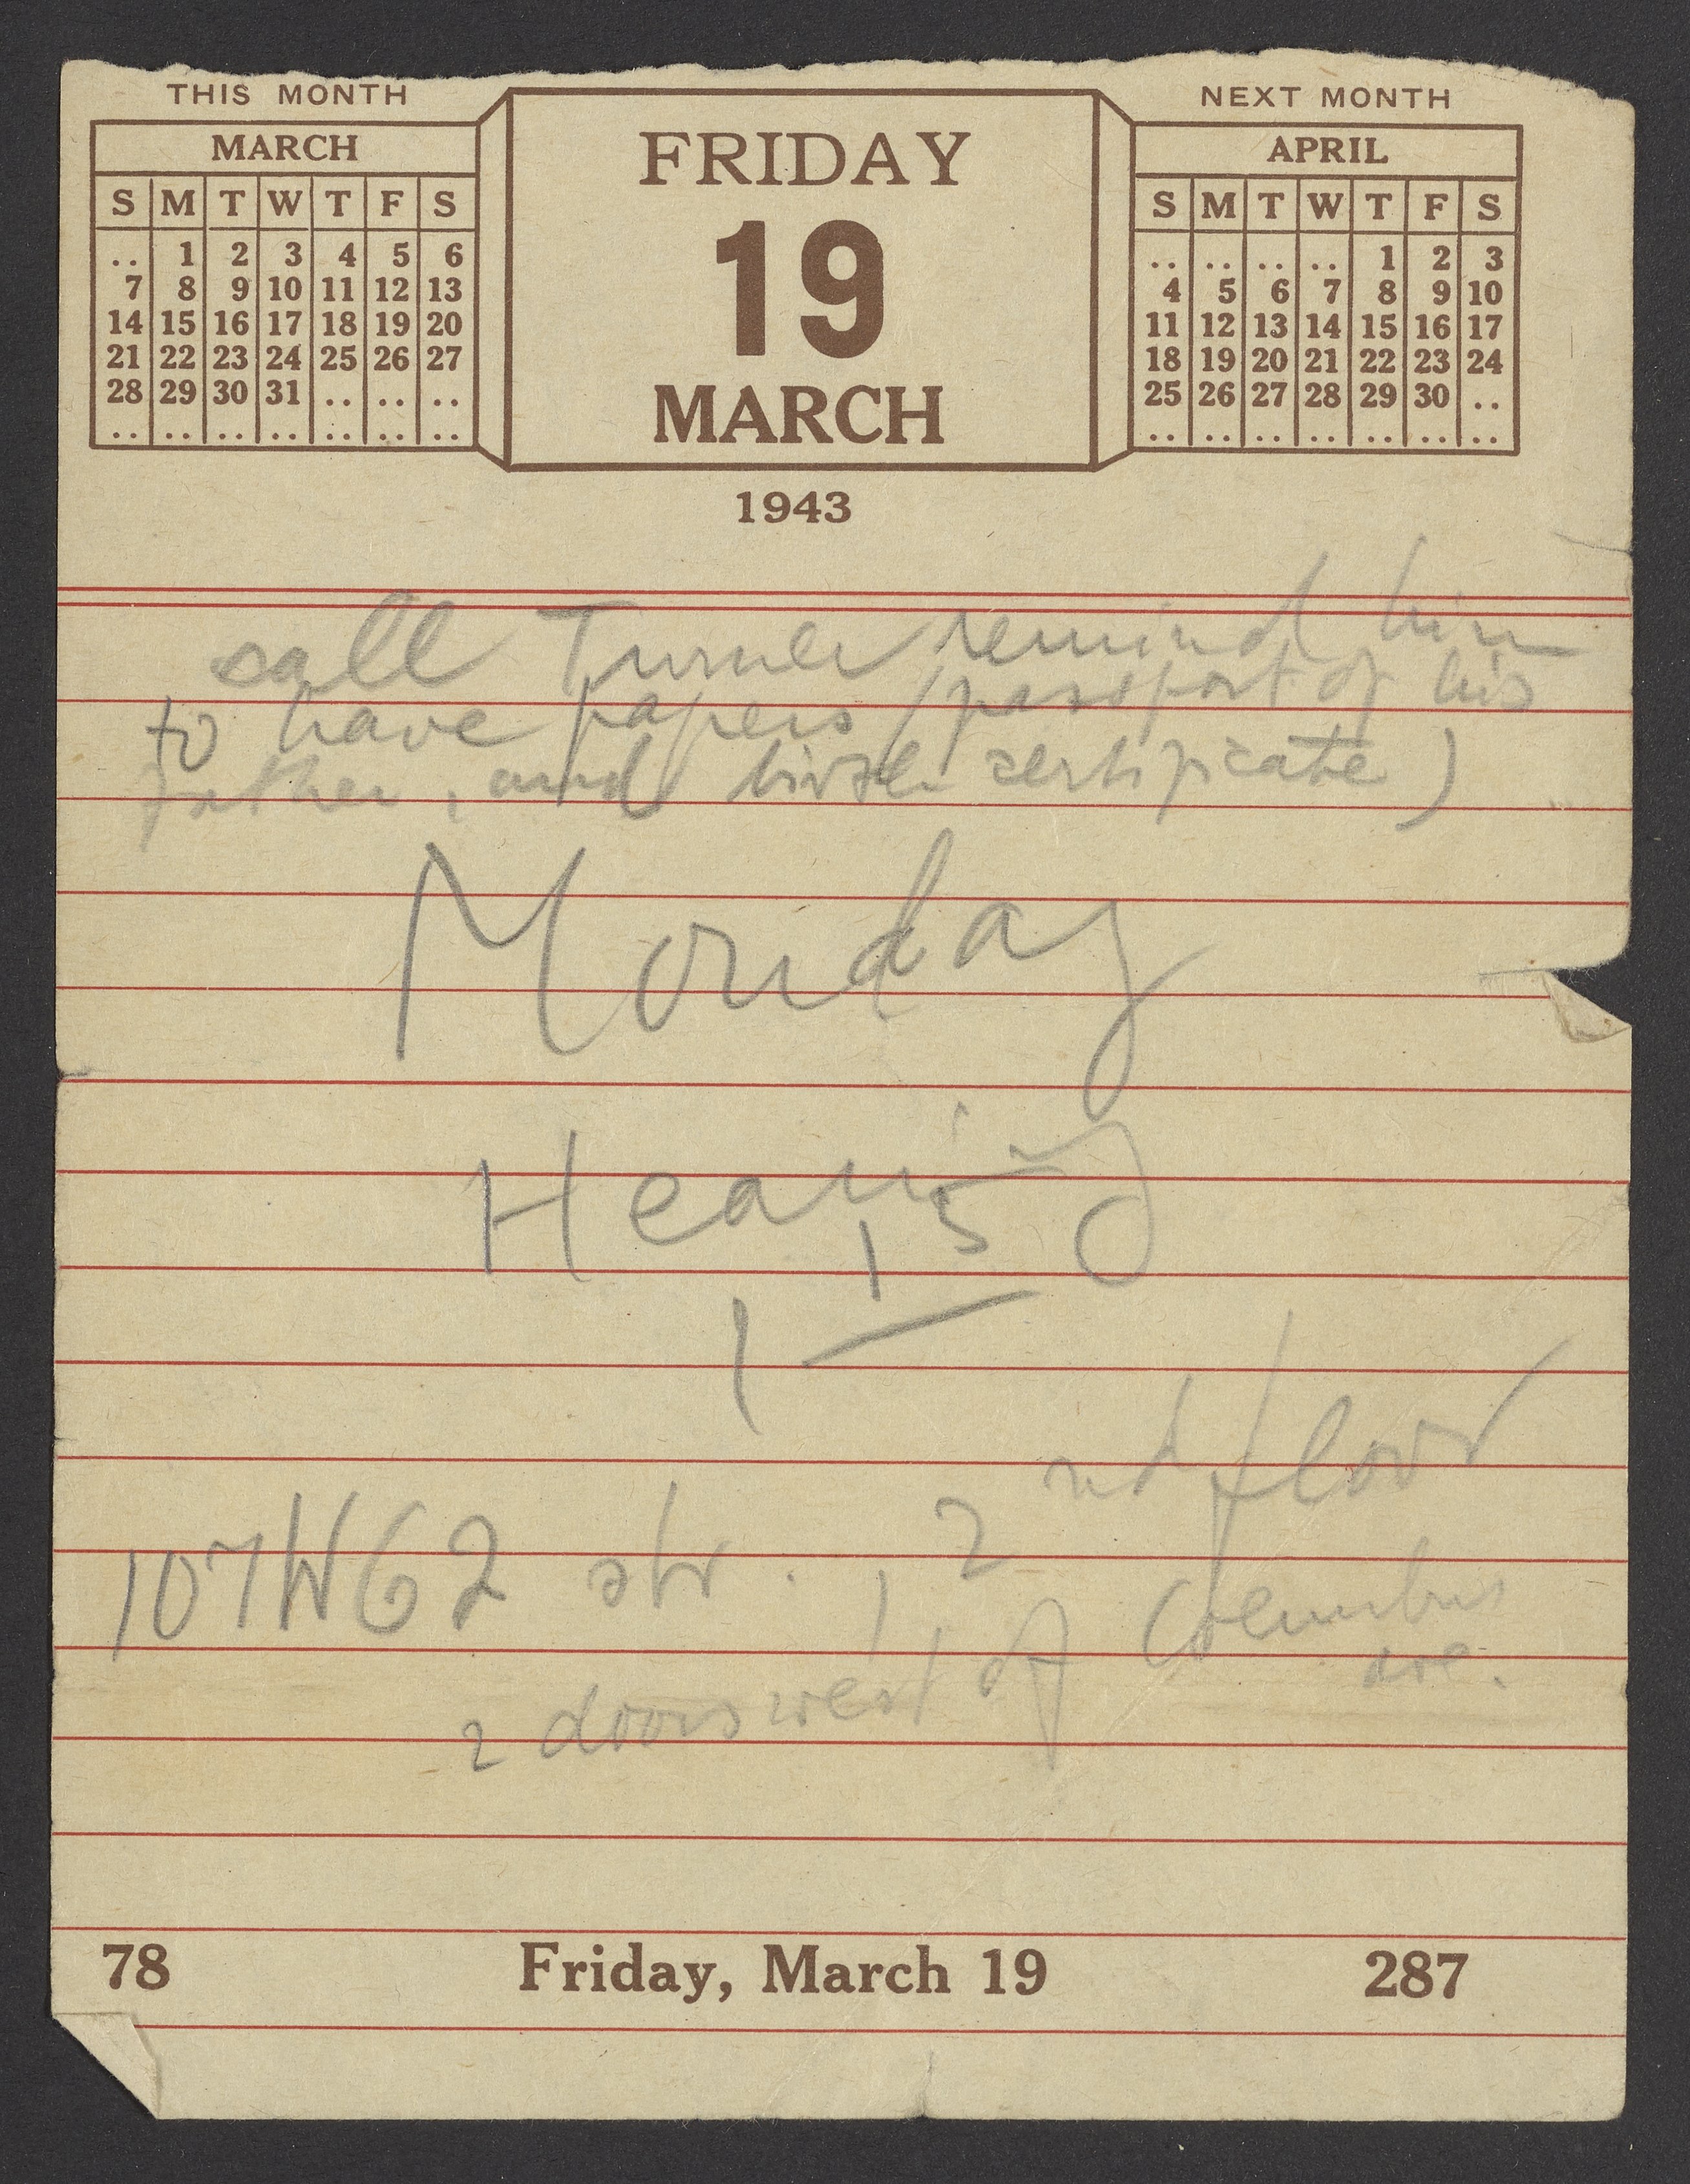 THIS MONTH
MARCH
S M T W T F S
.. 1 2 3 4 5 6
7 8 9 10 11 12 13
14 15 16 17 18 19 20
21 22 23 24 25 26 27
28 29 30 31 .. .. ..
.. .. .. .. .. .. ..
FRIDAY
19
MARCH
1943
NEXT MONTH
APRIL
S M T W T F S
.. .. .. .. 1 2 3
4 5 6 7 8 9 10
11 12 13 14 15 16 17
18 19 20 21 22 23 24
25 26 27 28 29 30 ..
.. .. .. .. .. .. ..
call Turner remind him
to have papers (passport of his
father, and birth certificate)
Monday
Hearing
1 15
107 W 62 str., 2nd floor
2 doors west of Columbus
ave.
78 Friday, March 19 287